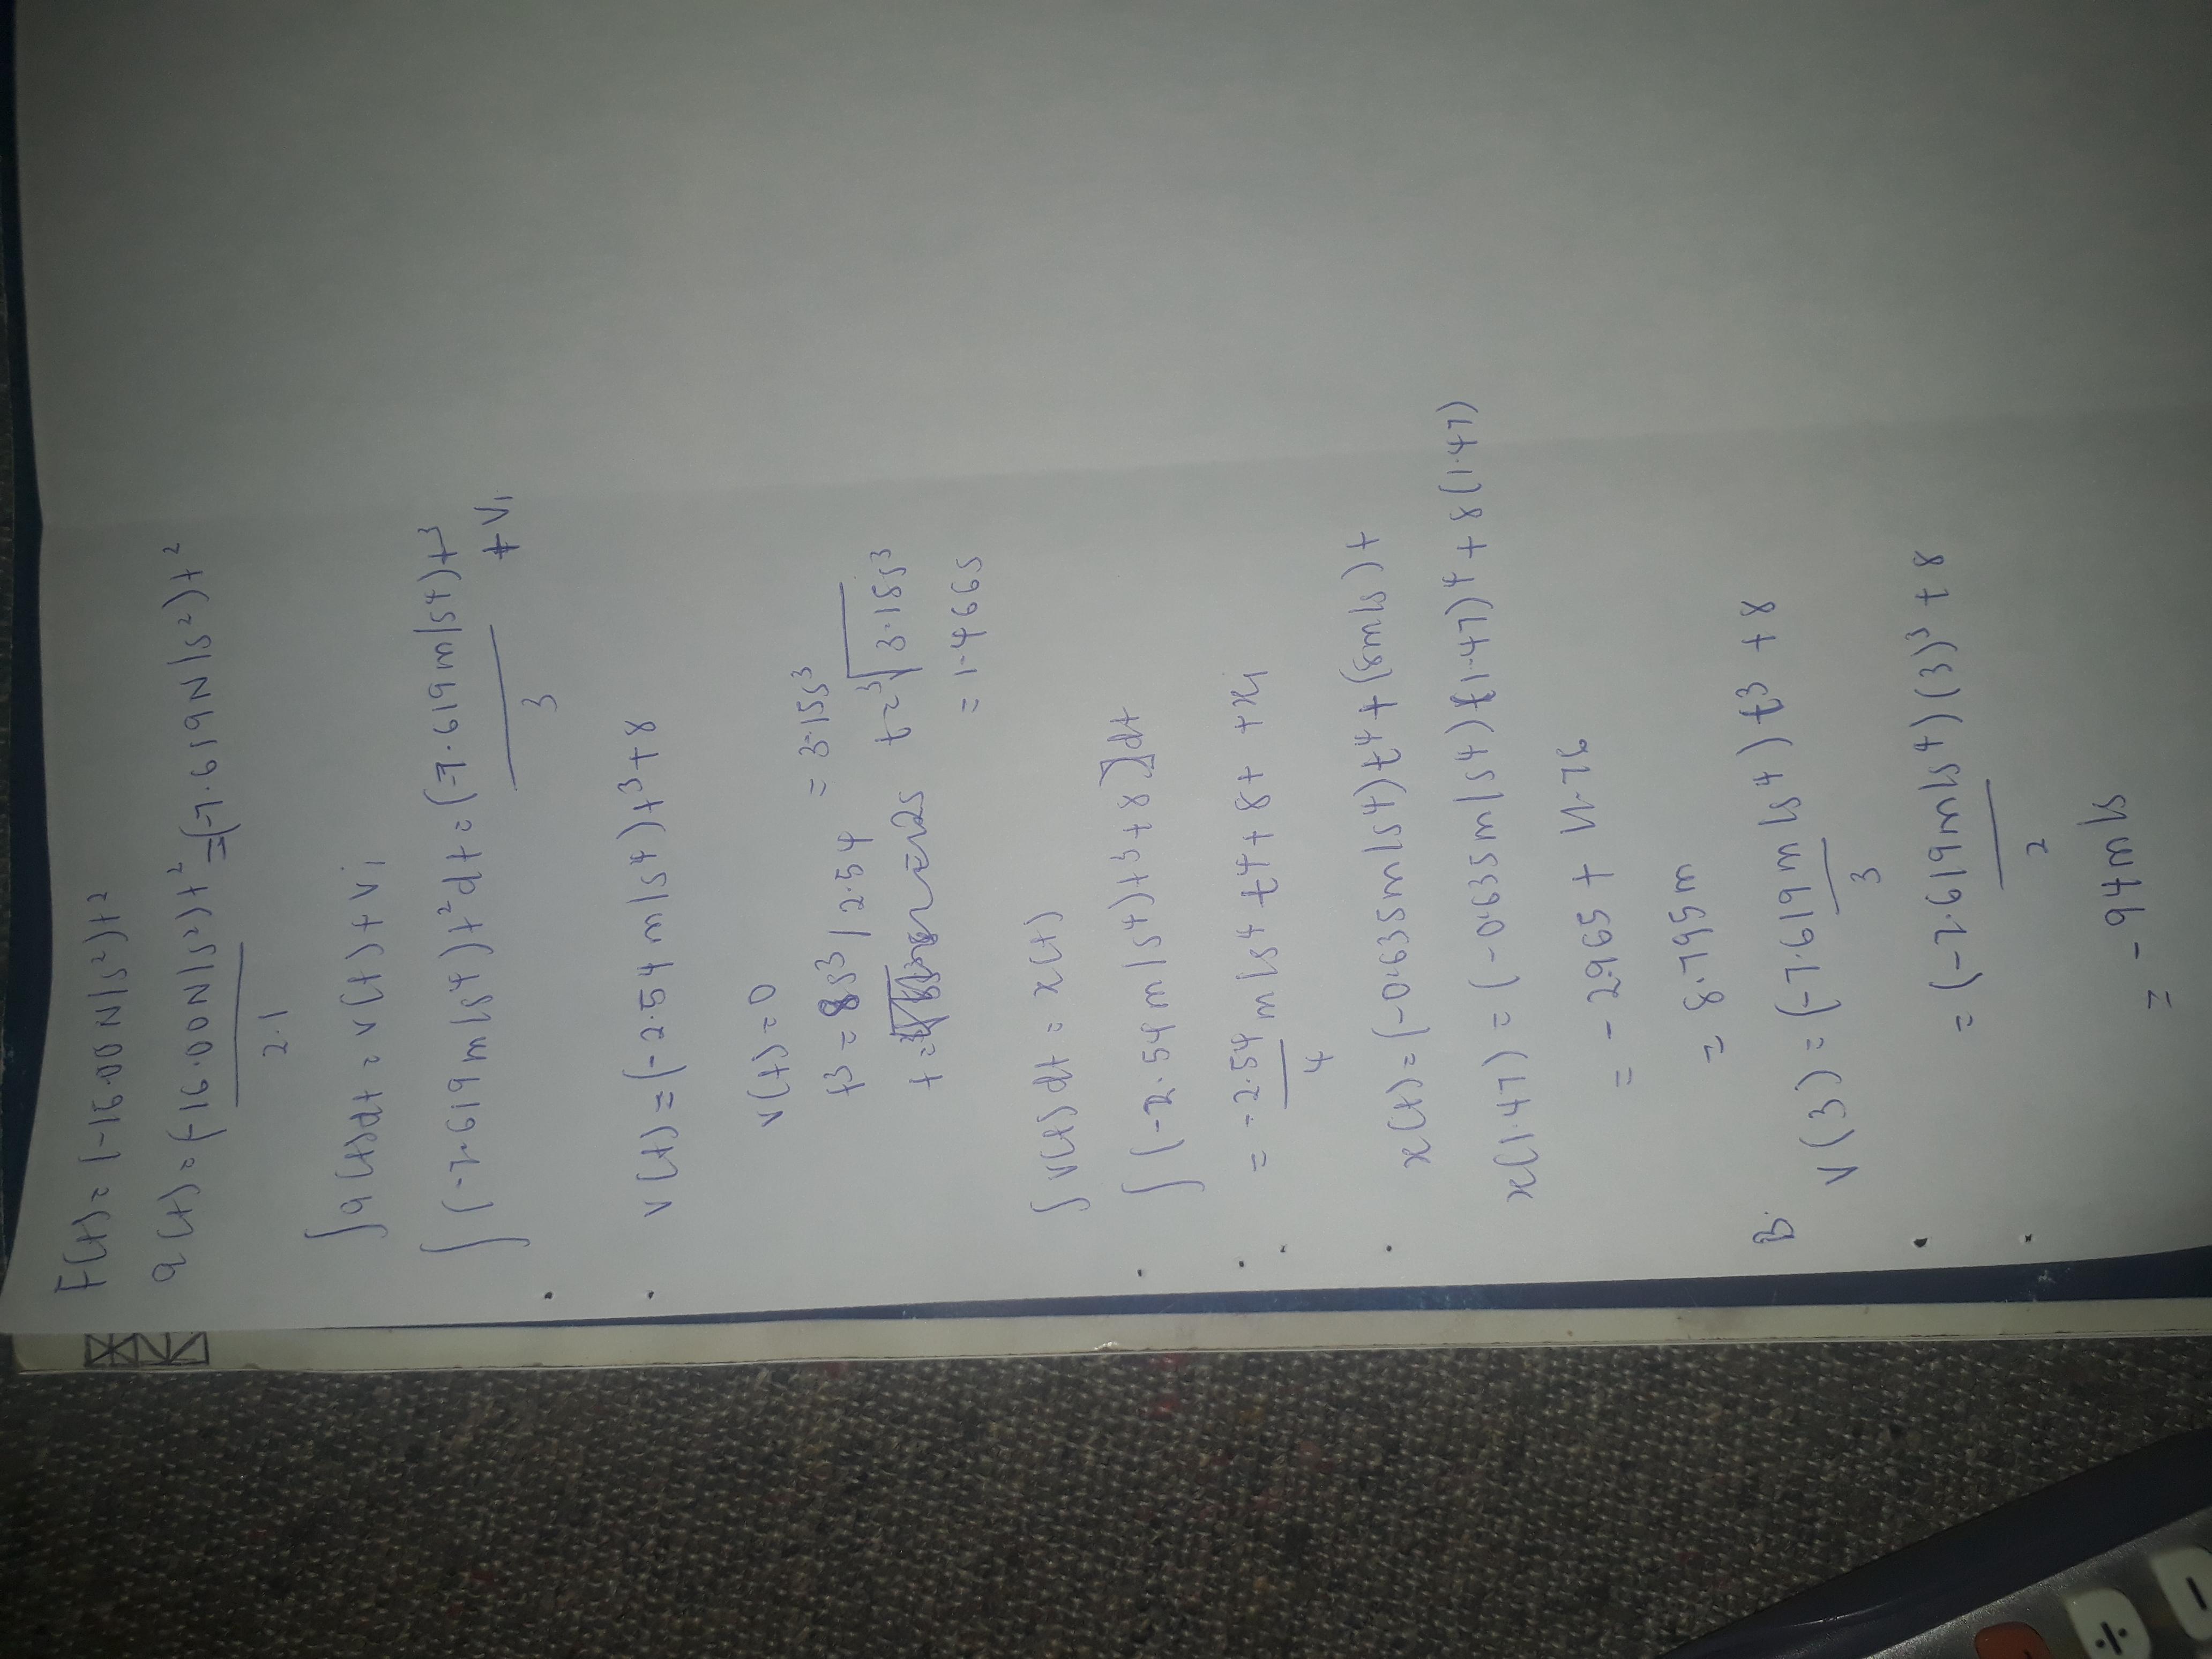 F(t) = (-16.00N/s²)t²
a(t) = (-16.00N/s²)t² = (-7.619N/s²)t²
2.1
∫a(t)dt = v(t) + vi
∫(-7.619m/s⁴)t²dt = (-7.619m/s⁴)t³ + vi
3
v(t) = (-2.54m/s⁴)t³ + 8
v(t) = 0
t³ = 8s³/2.54 = 3.15s³
t = ³√3.15s³
= 1.466s
∫v(t)dt = x(t)
∫(-2.54m/s⁴)t³ + 8]dt
= -2.54m/s⁴ t⁴ + 8t + xi
4
x(t) = (-0.635m/s⁴)t⁴ + (8m/s)t
x(1.47) = (-0.635m/s⁴)(1.47)⁴ + 8(1.47)
= -2.965 + 11.76
= 8.795m
B. v(3) = (-7.619m/s⁴)t³ + 8
3
= (-7.619m/s⁴)(3)³ + 8
2
= -94m/s
÷
-